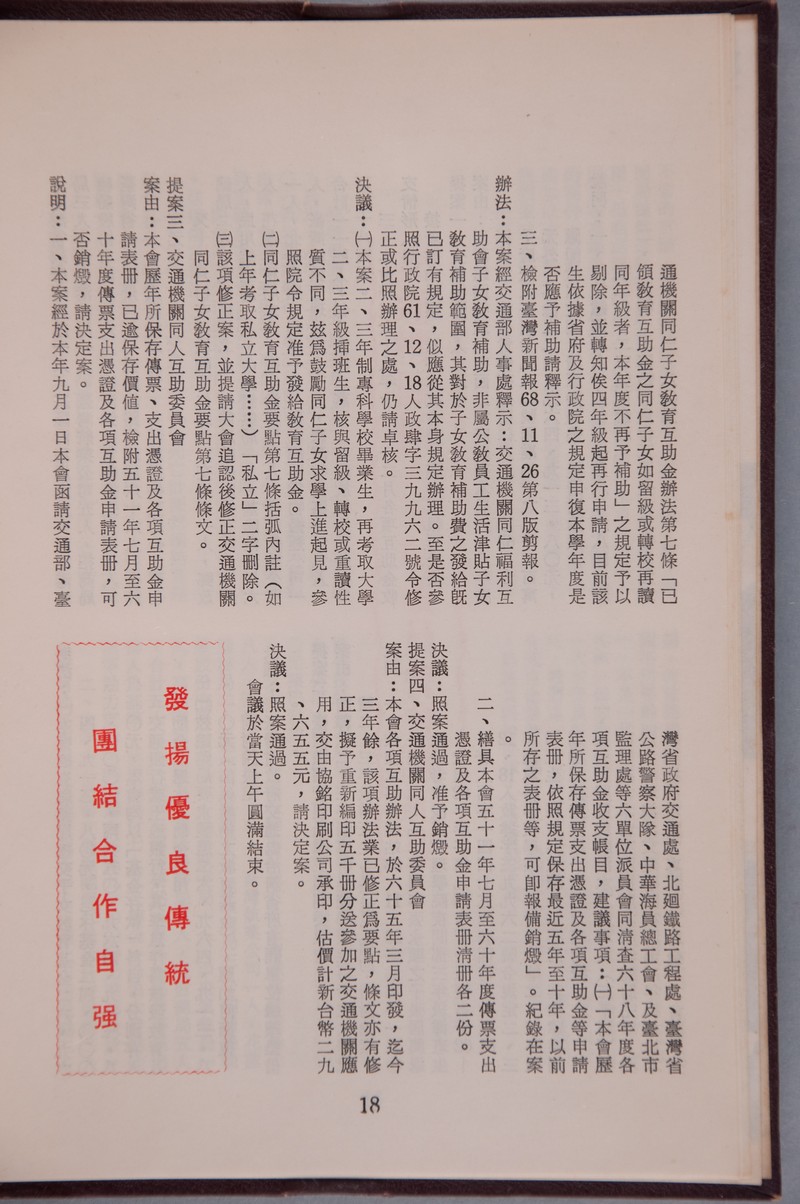 通機關同仁子女敎育互助金辦法第七條「已
領敎育互助金之同仁子女如留級或轉校再讀
同年級者，本年度不再予補助」之規定予以
剔除，並轉知俟四年級起再行申請，目前該
生依據省府及行政院之規定申復本學年度是
否應予補助請釋示。
三、檢附臺灣新聞報68、11、26第八版剪報。
辦法：本案經交通部人事處釋示：交通機關同仁福利互
助會子女敎育補助，非屬公敎員工生活津貼子女
敎育補助範圍，其對於子女敎育補助費之發給旣
已訂有規定，似應從其本身規定辦理。至是否參
照行政院61、12、18人政肆字三九九六二號令修
正或比照辦理之處，仍請卓核。
決議：㈠本案二、三年制專科學校畢業生，再考取大學
二、三年級揷班生，核與留級、轉校或重讀性
質不同，玆爲鼓勵同仁子女求學上進起見，參
照院令規定准予發給敎育互助金。
㈡同仁子女敎育互助金要點第七條括弧內註（如
上年考取私立大學……）「私立」二字刪除。
㈢該項修正案，並提請大會追認後修正交通機關
同仁子女敎育互助金要點第七條條文。
提案三、交通機關同人互助委員會
案由：本會歷年所保存傳票、支出憑證及各項互助金申
請表冊，已逾保存價値，檢附五十一年七月至六
十年度傳票支出憑證及各項互助金申請表冊，可
否銷燬，請決定案。
說明：一、本案經於本年九月一日本會函請交通部、臺
灣省政府交通處、北廻鐵路工程處、臺灣省
公路警察大隊、中華海員總工會、及臺北市
監理處等六單位派員會同淸查六十八年度各
項互助金收支帳目，建議事項：㈠「本會歷
年所保存傳票支出憑證及各項互助金等申請
表冊，依照規定保存最近五年至十年，以前
所存之表冊等，可卽報備銷燬」。紀錄在案
。
二、繕具本會五十一年七月至六十年度傳票支出
憑證及各項互助金申請表冊淸冊各二份。
決議：照案通過，准予銷燬。
提案四、交通機關同人互助委員會
案由：本會各項互助辦法，於六十五年三月印發，迄今
三年餘，該項辦法業已修正爲要點，條文亦有修
正，擬予重新編印五千冊分送參加之交通機關應
用，交由協銘印刷公司承印，估價計新台幣二九
、六五五元，請決定案。
決議：照案通過。
會議於當天上午圓滿結束。
發揚優良傳統
團結合作自强
18